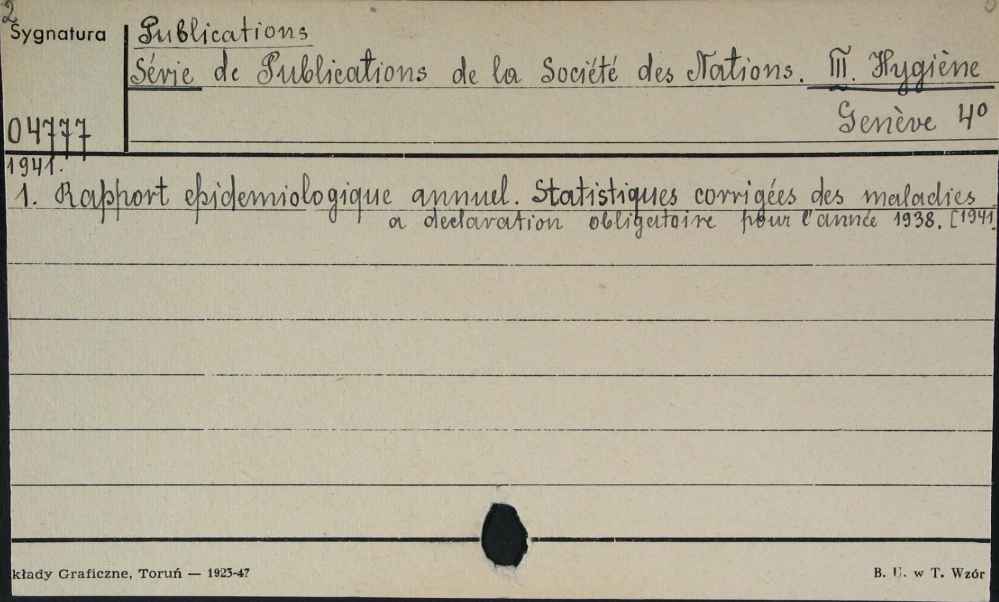 2
Sygnatura
Publications
Série de Publications de la Société des Nations. III. Hygiène
Genève 4º
04777
1941.
1. Rapport epidemiologique annuel. Statistiques corrigées des maladies
a declaration obligatoire pour l'année 1938. [1941.
kłady Graficzne, Toruń — 1923-47
B. U. w T. Wzór